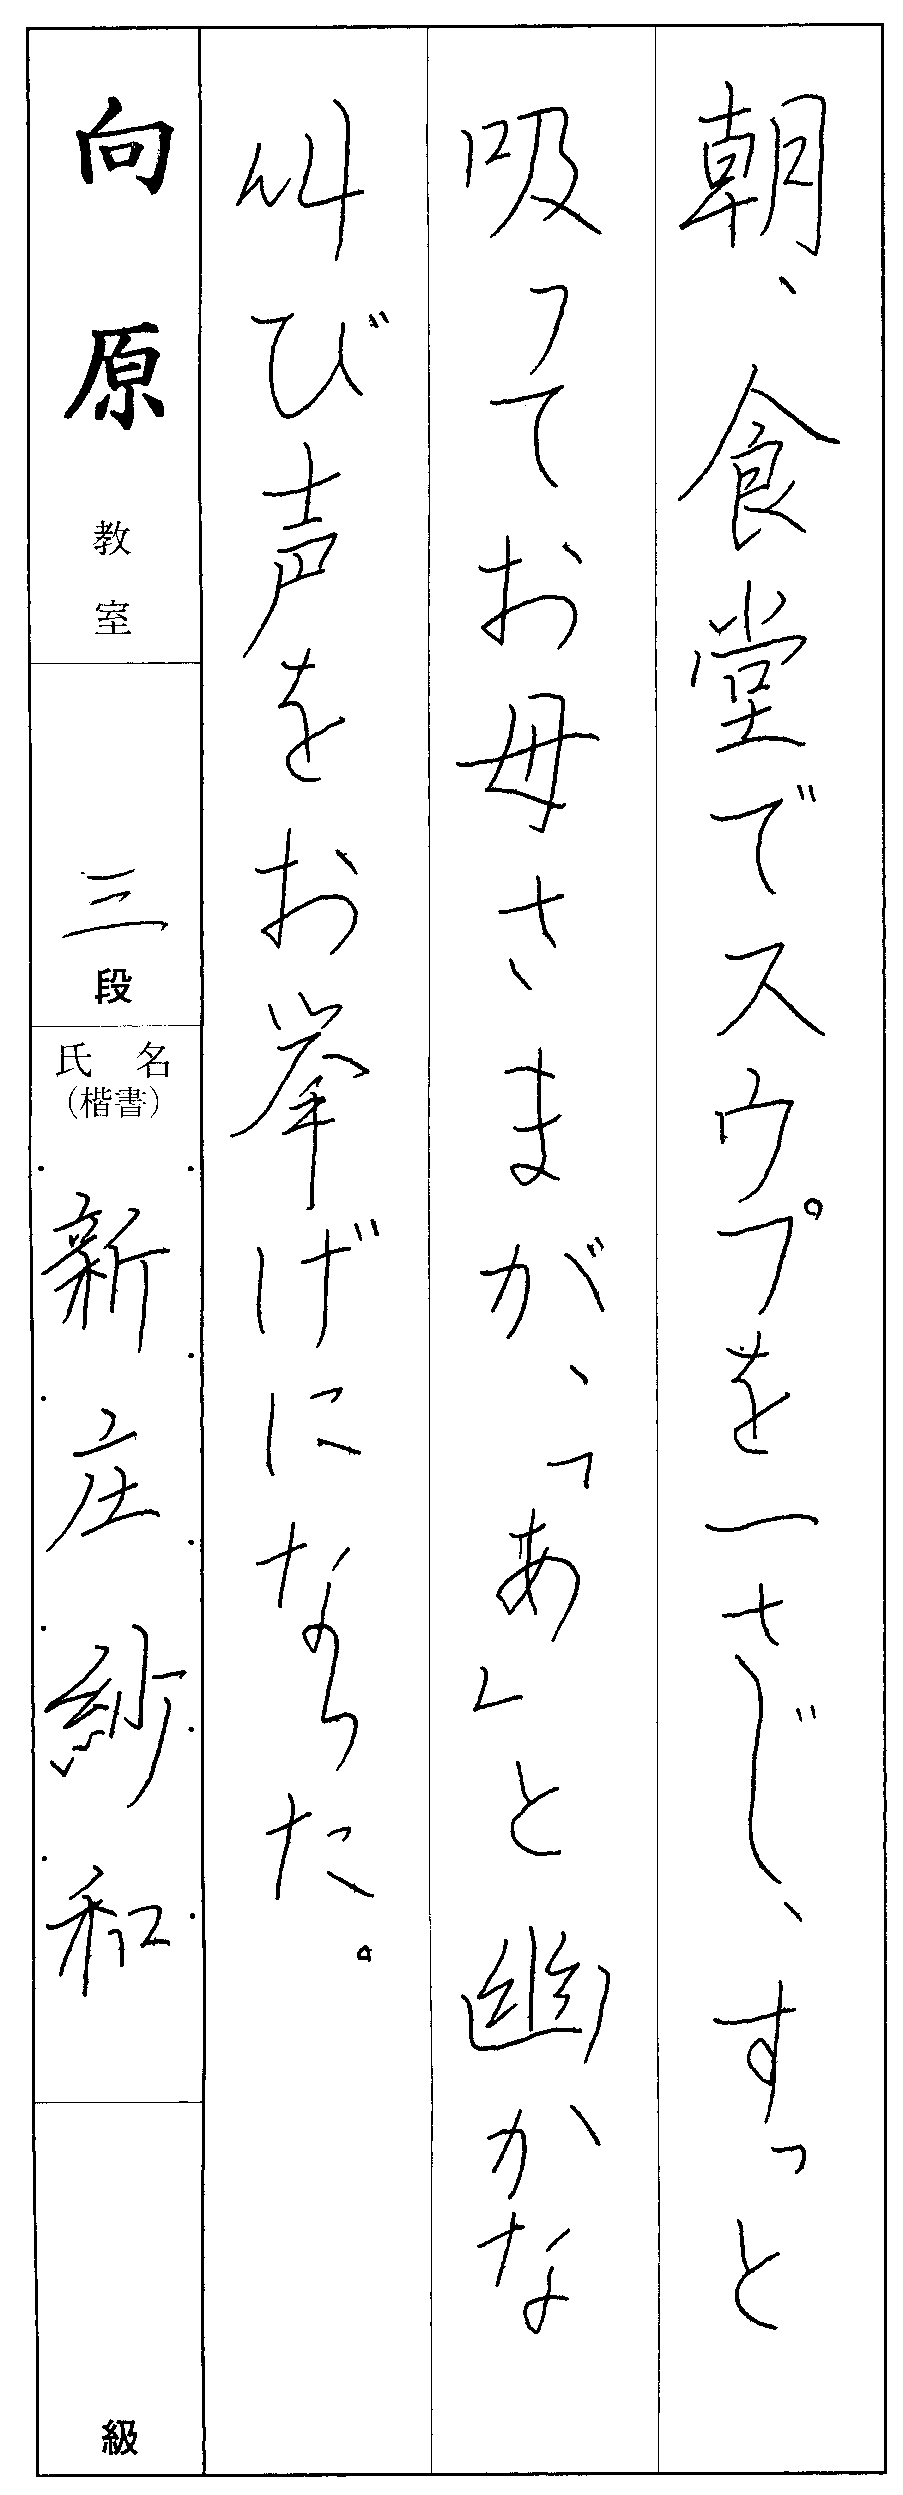 朝、食堂でスウプを一さじ、すっと
吸ってお母さまが、「あ」と幽かな
叫び声をお挙げになった。
向原教室
三段
氏名
（楷書）
新庄紗和
級